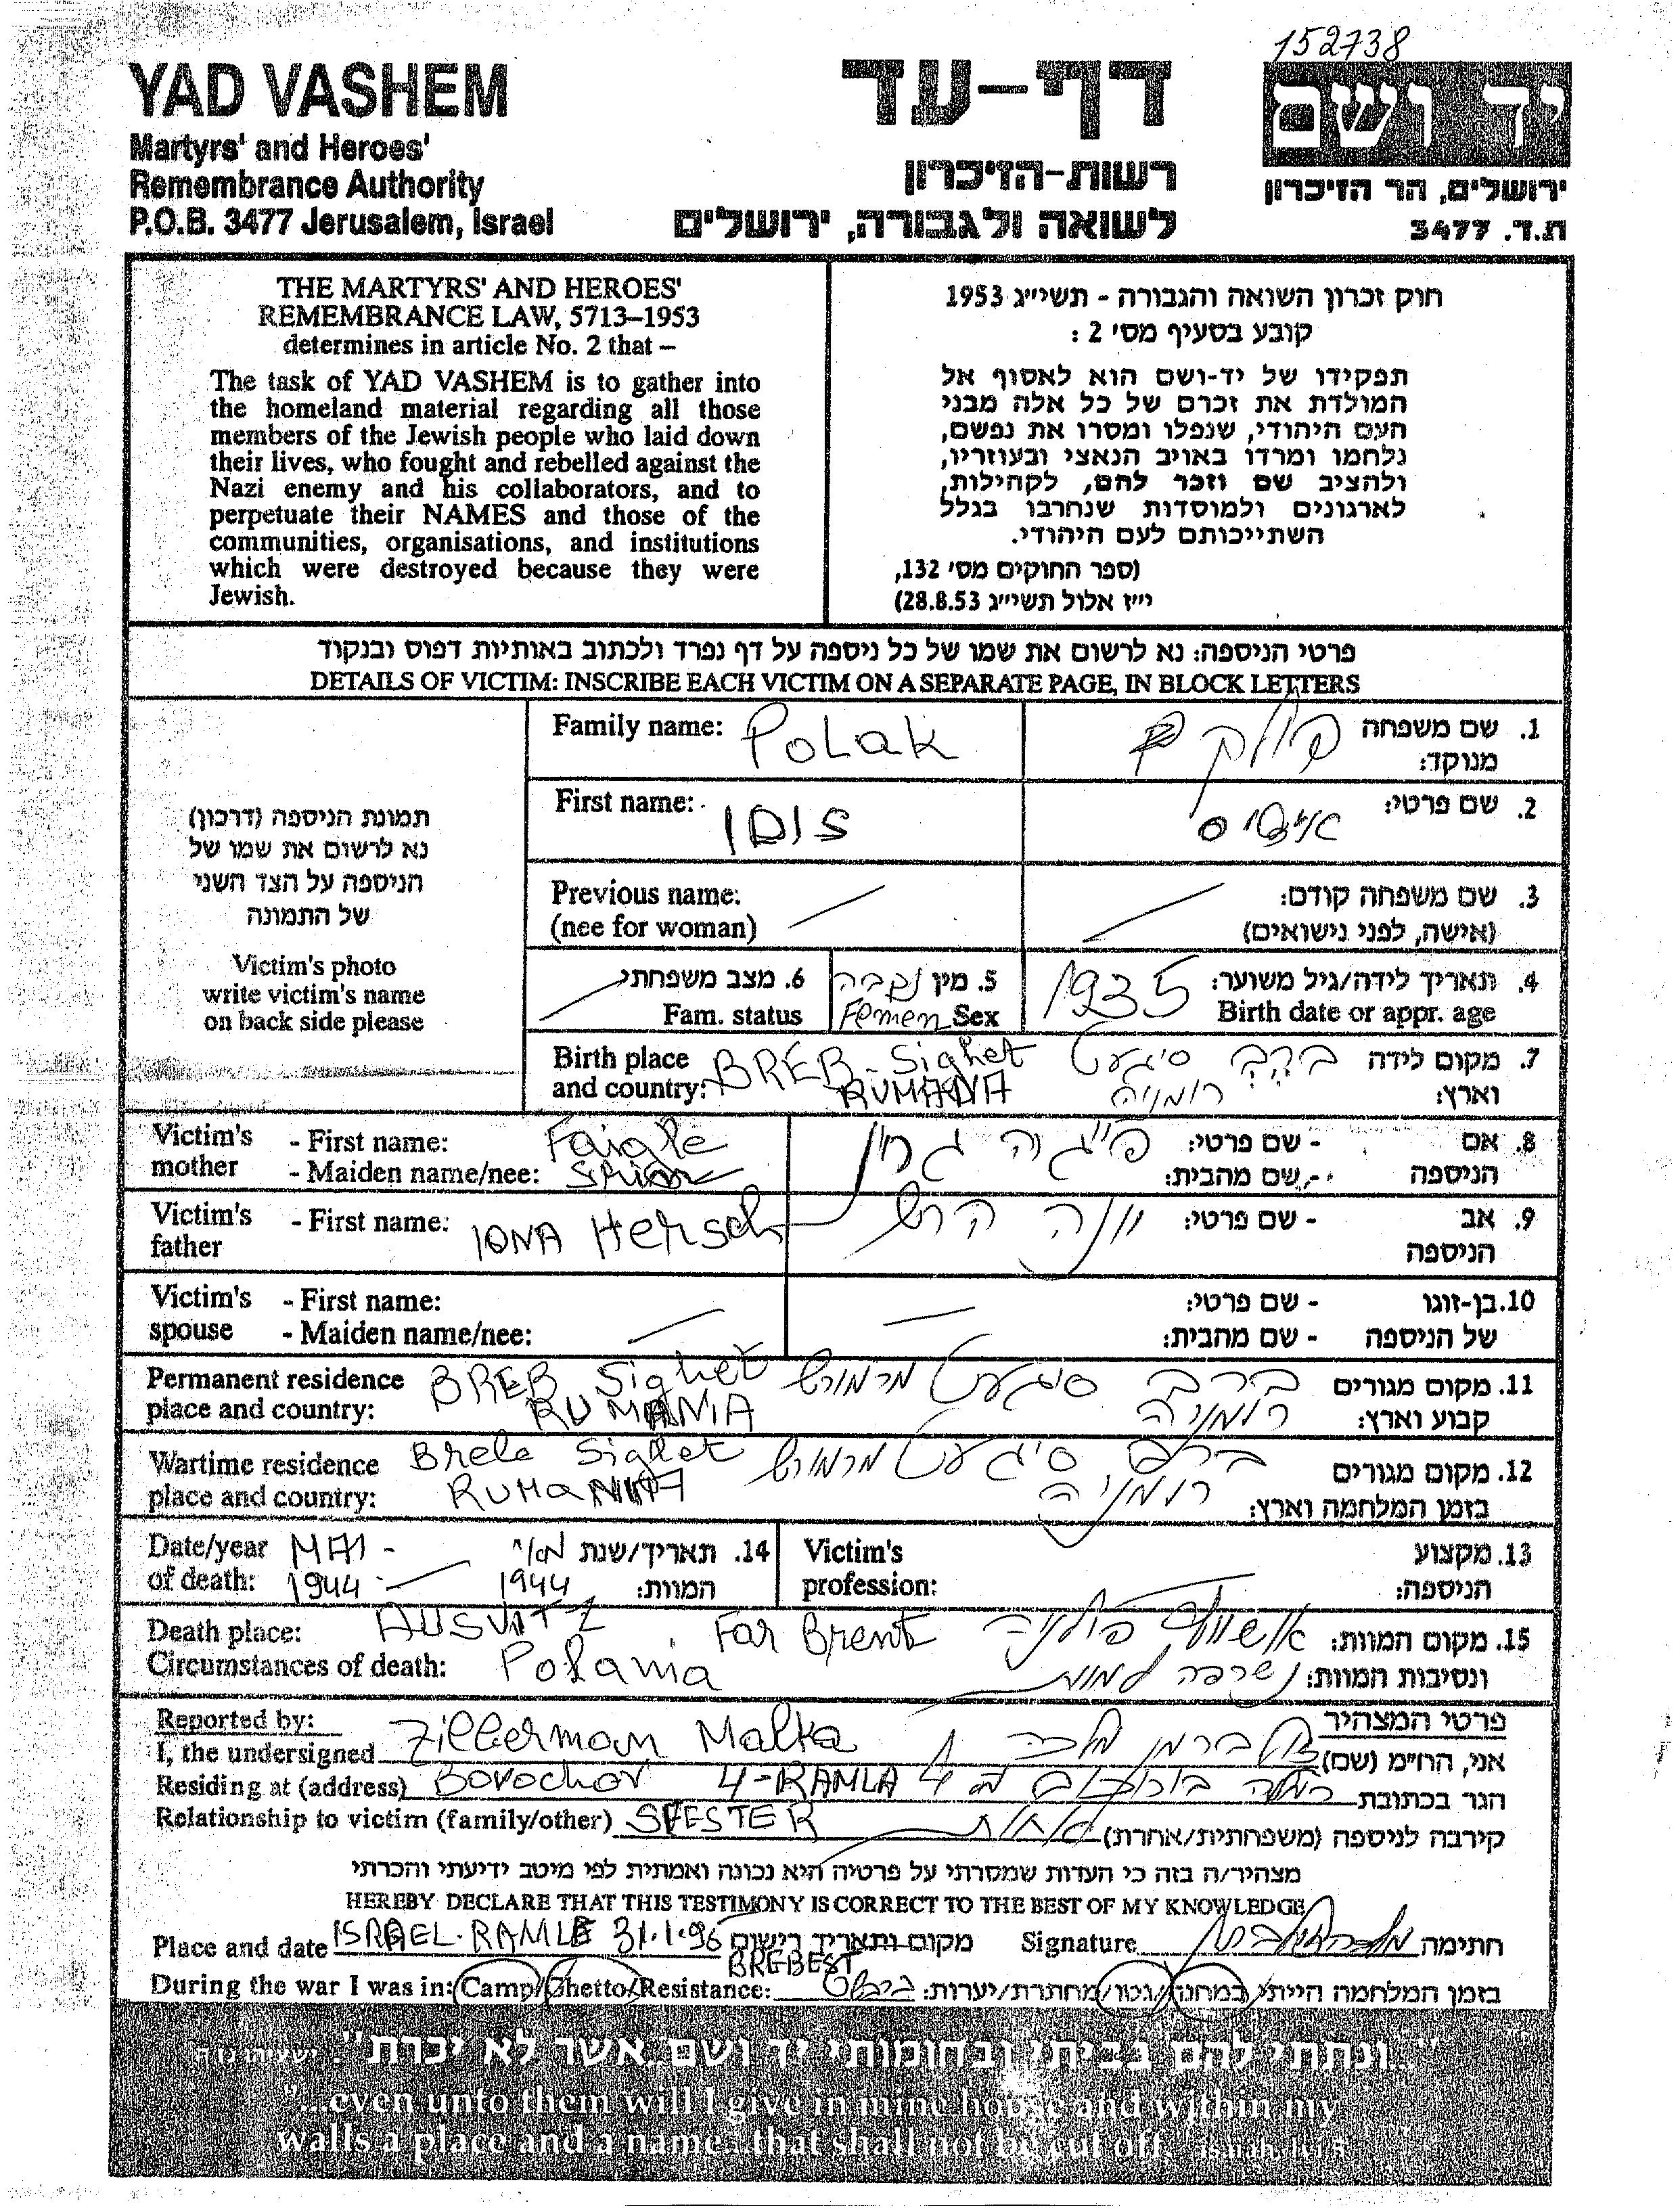 152738
YAD VASHEM
Martyrs' and Heroes'
Remembrance Authority
P.O.B. 3477 Jerusalem, Israel
דף-עד
רשות-הזיכרון
לשואה ולגבורה, ירושלים
יד ושם
ירושלים, הר הזיכרון
ת.ד. 3477
THE MARTYRS' AND HEROES'
REMEMBRANCE LAW, 5713–1953
determines in article No. 2 that –
The task of YAD VASHEM is to gather into
the homeland material regarding all those
members of the Jewish people who laid down
their lives, who fought and rebelled against the
Nazi enemy and his collaborators, and to
perpetuate their NAMES and those of the
communities, organisations, and institutions
which were destroyed because they were
Jewish.
חוק זכרון השואה והגבורה - תשי״ג 1953
קובע בסעיף מס׳ 2 :
תפקידו של יד-ושם הוא לאסוף אל
המולדת את זכרם של כל אלה מבני
העם היהודי, שנפלו ומסרו את נפשם,
נלחמו ומרדו באויב הנאצי ובעוזריו,
ולהציב שם וזכר להם, לקהילות,
לארגונים ולמוסדות שנחרבו בגלל
השתייכותם לעם היהודי.
(ספר החוקים מס׳ 132,
י״ז אלול תשי״ג 28.8.53)
פרטי הניספה: נא לרשום את שמו של כל ניספה על דף נפרד ולכתוב באותיות דפוס ובנקוד
DETAILS OF VICTIM: INSCRIBE EACH VICTIM ON A SEPARATE PAGE, IN BLOCK LETTERS
תמונת הניספה (דרכון)
נא לרשום את שמו של
הניספה על הצד השני
של התמונה
Victim's photo
write victim's name
on back side please
Family name: PoLak
פולק
1. שם משפחה
מנוקד:
First name: IDIS
אידיס
2. שם פרטי:
Previous name:
(nee for woman)
3. שם משפחה קודם:
(אישה, לפני נישואים)
6. מצב משפחתי
Fam. status
5. מין נקבה
Femen Sex
1935
4. תאריך לידה/גיל משוער:
Birth date or appr. age
Birth place BREB - Sighet
and country: RUMANIA
7. מקום לידה ברב סיגעט
וארץ: רומניה
Victim's - First name: Faigle
mother - Maiden name/nee:
8. אם - שם פרטי: פייגה
הניספה - שם מהבית:
Victim's - First name: IONA Hersch
father
9. אב - שם פרטי: יונה הרש
הניספה
Victim's - First name:
spouse - Maiden name/nee:
10. בן-זוגו - שם פרטי:
של הניספה - שם מהבית:
Permanent residence BREB Sighet
place and country: RUMANIA
11. מקום מגורים ברב סיגעט מרמורש
קבוע וארץ: רומניה
Wartime residence Breb Sighet
place and country: RUMANIA
12. מקום מגורים ברב סיגעט מרמורש
בזמן המלחמה וארץ: רומניה
Date/year MAI -
of death: 1944
14. תאריך/שנת מאי
המוות: 1944
Victim's
profession:
13. מקצוע
הניספה:
Death place: AUSVITZ Far Brent
Circumstances of death: Polania
15. מקום המוות: אושוויץ פולניה
ונסיבות המוות: נשרפה למוות
Reported by:
I, the undersigned Zilberman Malka
Residing at (address) Borochov 4-RAMLA
Relationship to victim (family/other) SFESTER
פרטי המצהיר
אני, הח״מ (שם) זילברמן מלכה
הגר בכתובת רמלה בורוכוב 4
קירבה לניספה (משפחתית/אחרת) אחות
מצהיר/ה בזה כי העדות שמסרתי על פרטיה היא נכונה ואמתית לפי מיטב ידיעתי והכרתי
HEREBY DECLARE THAT THIS TESTIMONY IS CORRECT TO THE BEST OF MY KNOWLEDGE
Place and date ISRAEL. RAMLE 31.1.96 מקום ותאריך רישום
Signature חתימה
BREBEST
During the war I was in: Camp/Ghetto/Resistance:
בזמן המלחמה הייתי במחנה/גטו/מחתרת/יערות:
"..ונתתי להם בביתי ובחומותי יד ושם אשר לא יכרת".
"...even unto them will I give in mine house and within my
walls a place and a name...that shall not be cut off." Isaiah, lvi, 5